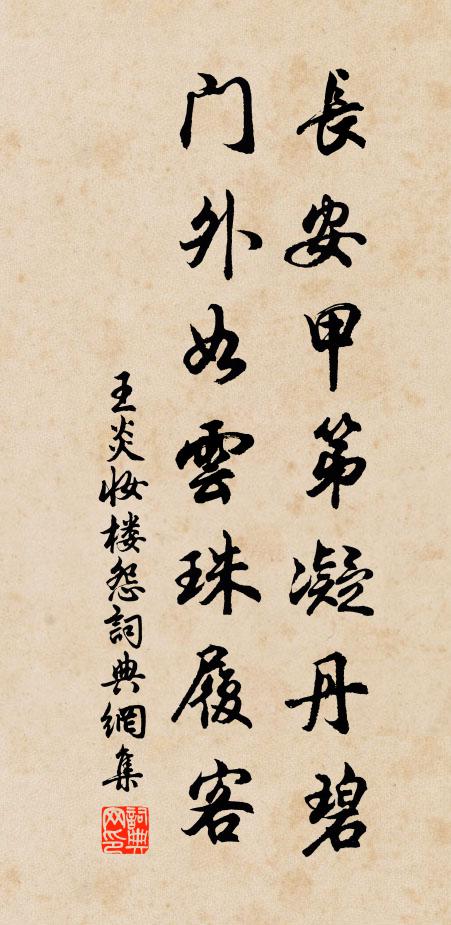 長安甲第凝丹碧
门外如雲珠履客
王炎妆楼怨詞典網集
詞典网印